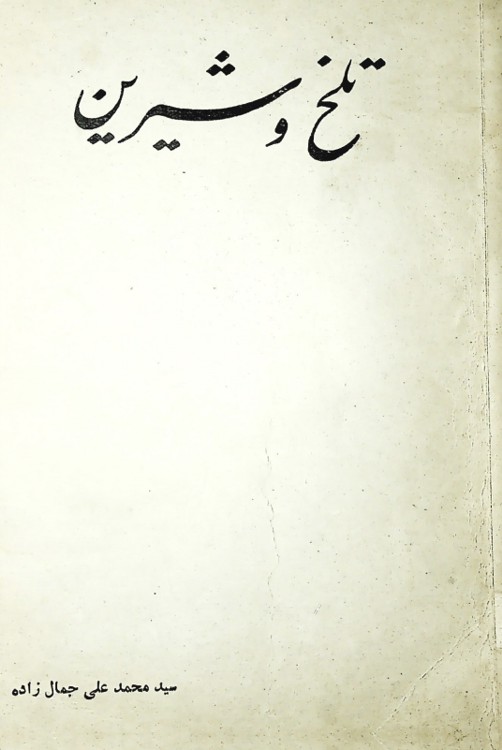 تلخ و شیرین
سید محمد علی جمال زاده